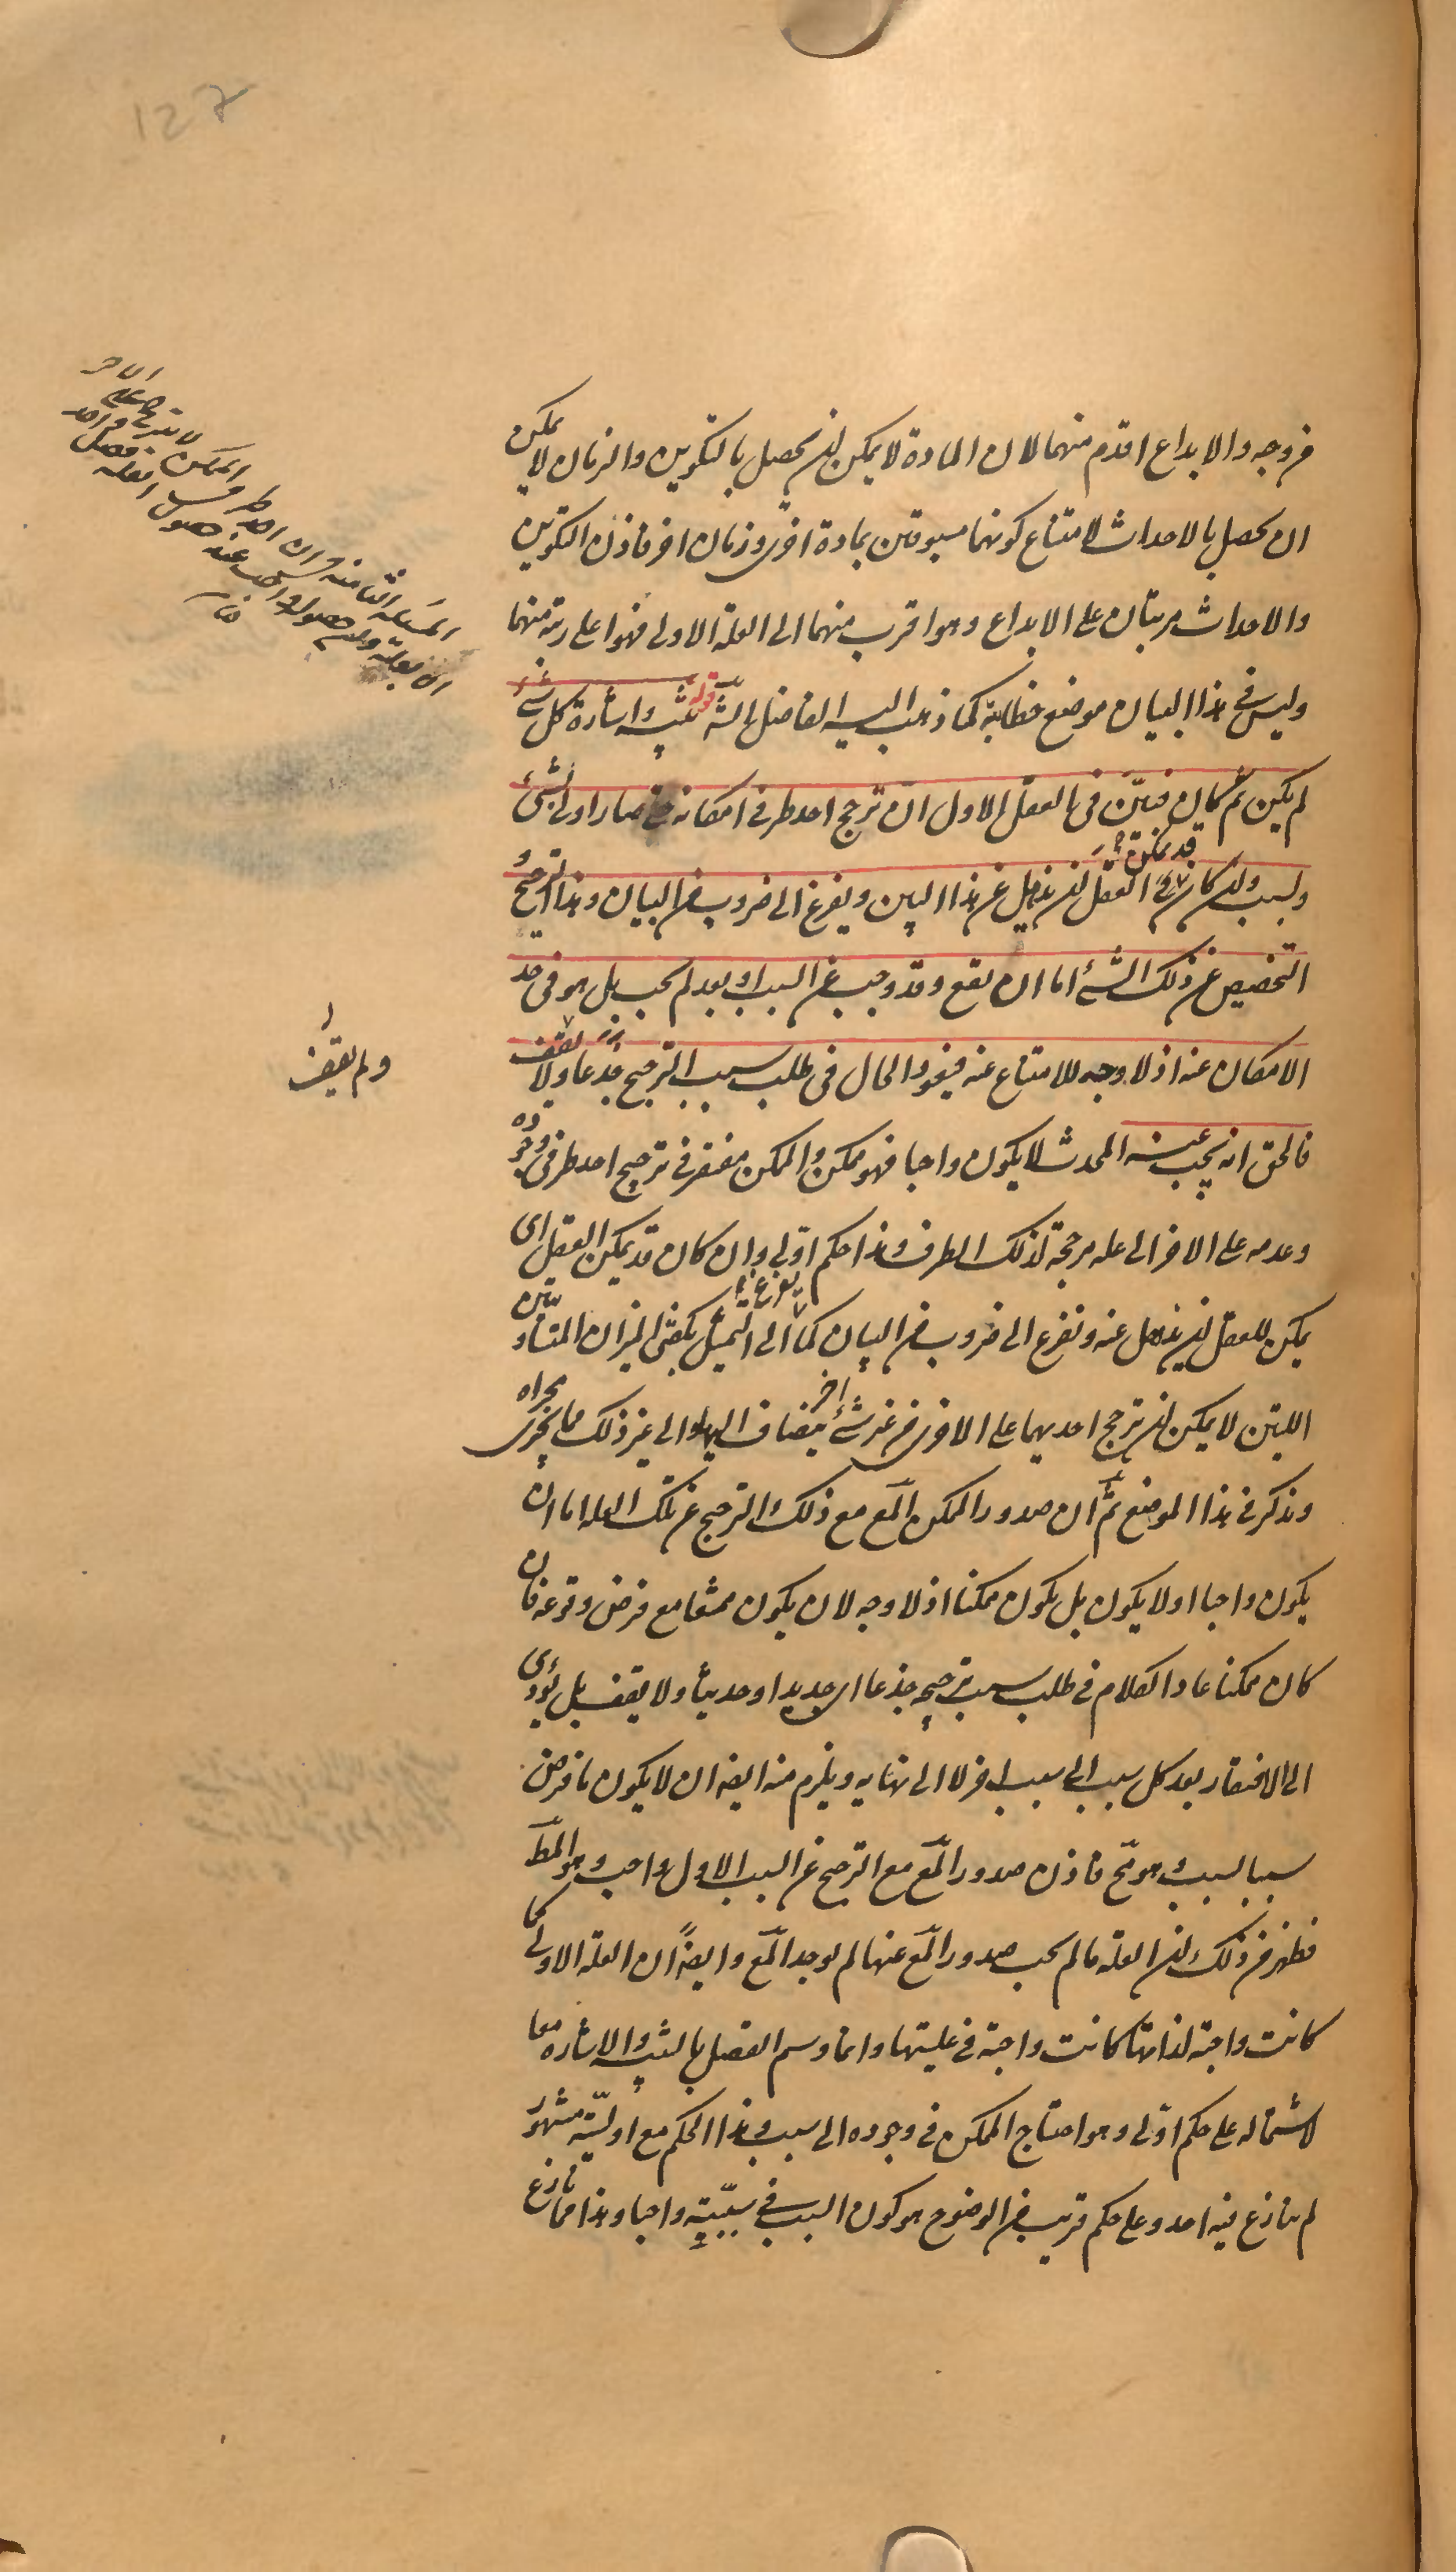 من وجه والابداع اقدم منهما لان المادة لا يمكن ان يحصل بالتكوين والزمان لا يمكن
ان يحصل بالاحداث لامتناع كونهما مسبوقين بمادة اخرى وزمان اخر فاذن التكوين
والاحداث مرتبان على الابداع وهو اقرب منهما الى العلة الاولى فهو اعلى رتبة منهما
وليس في هذا البيان موضع خطابة كما ذهب اليه الفاضل الشّ قوله تنبيه واشارة كل شئ
لم يكن ثم كان فبيّن في العقل الاول ان ترجح احد طرفي امكانه صار اولى بشئ
وبسبب وان كان قد يمكن العقل ان يذهل عن هذا البين ويفزع الى ضروب من البيان وهذا الترجيح و
التخصيص عن ذلك الشئ اما ان يقع وقد وجب عن السبب او بعد لم يجب بل هو في حد
الامكان عنه اذ لا وجه للامتناع عنه فيعود الحال في طلب سبب الترجيح جذعا ولا يقف
ولم يقف
فالحق انه يجب عنه المحدث لا يكون واجبا فهو ممكن والممكن مفتقر في ترجيح احد طرفي وجوده
وعدمه على الاخر الى علة مرجحة لذلك الطرف وهذا حكم اولى وان كان قد يمكن العقل اى
يمكن للعقل ان يذهل عنه ويفزع الى ضروب من البيان كما يفزع الى التمثيل بكفتى الميزان المتساويتين
اللتين لا يمكن ان يترجح احديهما على الاخرى من غير شئ اخر ينضاف اليها والى غير ذلك مما يجرى مجراه
ويذكر في هذا الموضع ثمّ ان صدور الممكن المعّ مع ذلك الترجيح عن تلك العلة اما ان
يكون واجبا او لا يكون بل يكون ممكنا اذ لا وجه لان يكون ممتنعا مع فرض وقوعه فان
كان ممكنا عاد الكلام في طلب سبب ترجيحه جذعا اى جديدا او حديثا ولا يقف بل يؤدى
الى الافتقار بعد كل سبب الى سبب اخر لا الى نهاية ويلزم منه ايضا ان لا يكون ما فرض
سببا لسبب وهو مح فاذن صدور المعّ مع الترجيح عن السبب الاول واجب وهو المطّ
فظهر من ذلك ان العلة ما لم يجب صدور المعّ عنها لم يوجد المعّ وايضاً ان العلة الاولى لما
كانت واجبة لذاتها كانت واجبة في عليتها وانما وسم الفصل بالتنبيه والاشارة معا
لاشتماله على حكم اولى وهو احتياج الممكن في وجوده الى سبب وهذا الحكم مع اوليّته مشهور
لم ينازع فيه احد وعلى حكم قريب من الوضوح هو كون السبب في سببيّته واجبا وهذا مما نازع
المسئلة الثامنة في ان احد طرفى الممكن لا يترجح على الاخر
الا بعلة